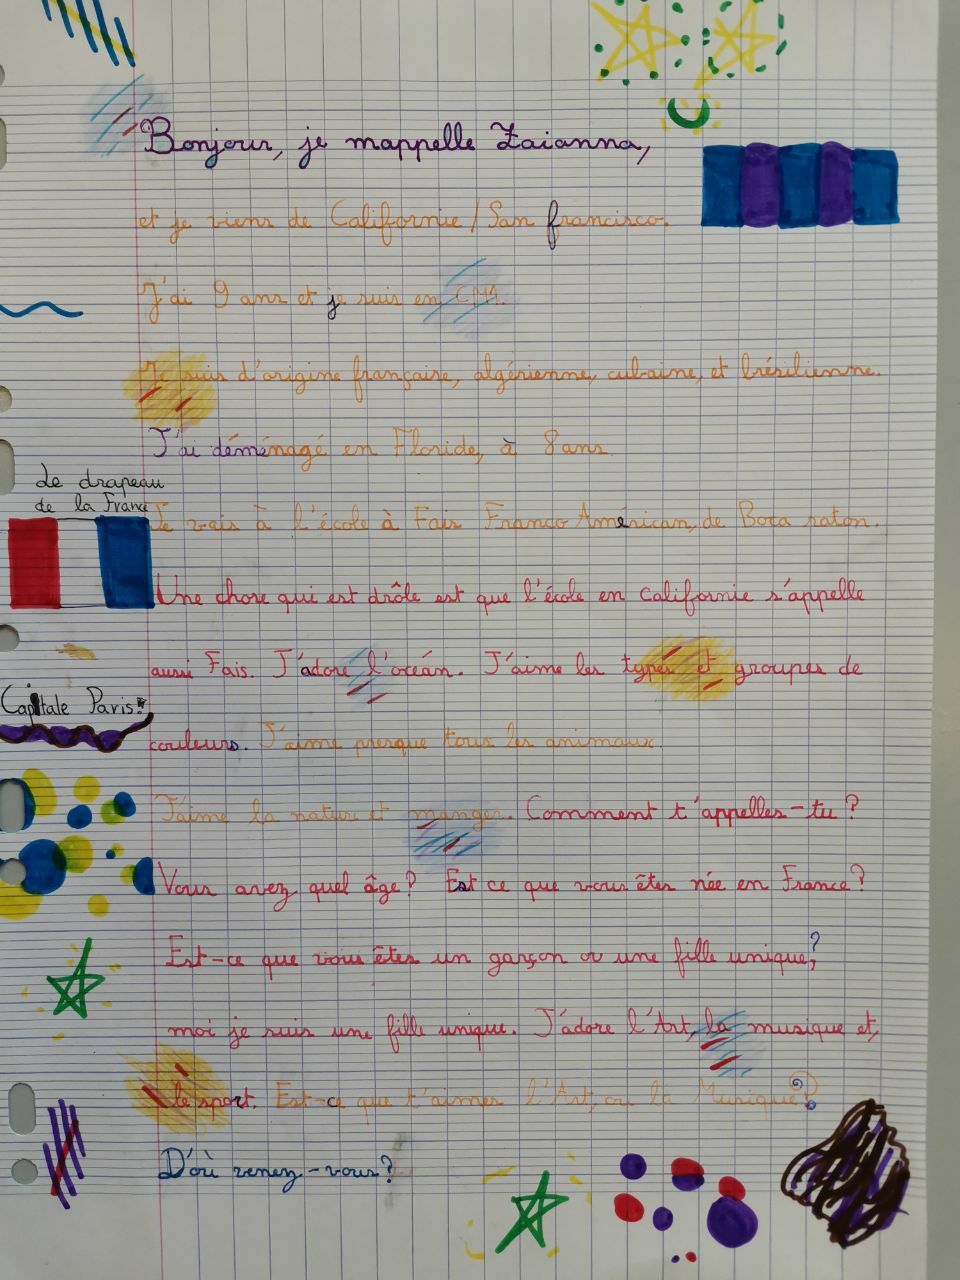 Bonjour, je mappelle Zaianna,
et je viens de Californie / San francisco.
J'ai 9 ans et je suis en CM1.
Je suis d'origine française, algérienne, cubaine, et brésilienne.
J'ai déménagé en Floride, à 8 ans
Le drapeau
de la France
Je vais à l'école à Fais Franco Américan, de Boca raton.
Une chose qui est drôle est que l'école en Californie s'appelle
aussi Fais. J'adore l'océan. J'aime les types et groupes de
Capitale Paris!
couleurs. J'aime presque tous les animaux
J'aime la nature et manger. Comment t'appelles-tu?
Vous avez quel âge? Est ce que vous êtes née en France?
Est-ce que vous êtes un garçon ou une fille unique,?
moi je suis une fille unique. J'adore l'Art, la musique et,
le sport. Est-ce que t'aimes l'Art, ou la Musique?
D'où venez-vous?